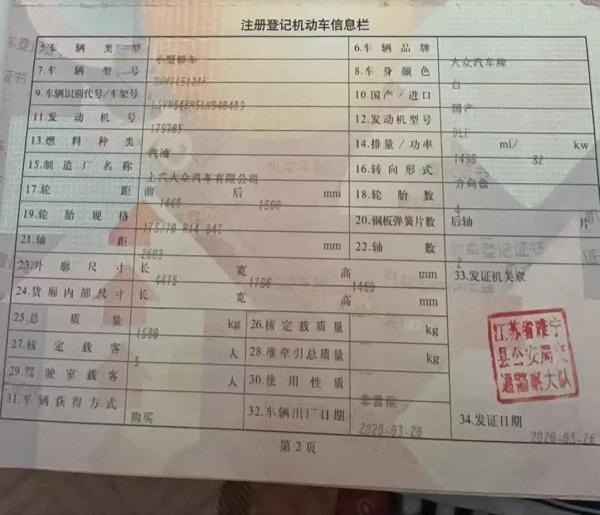 注册登记机动车信息栏
5.车辆类型 小型轿车 6.车辆品牌 大众汽车牌
7.车辆型号 8.车身颜色 白
9.车辆识别代号/车架号 10.国产/进口 国产
11.发动机号 179705 12.发动机型号 DLF
13.燃料种类 汽油 14.排量/功率 1498 ml/ 82 kw
15.制造厂名称 上汽大众汽车有限公司 16.转向形式 方向盘
17.轮距 前 1460 后 1500 mm 18.轮胎数 4
19.轮胎规格 175/70 R14 84T 20.钢板弹簧片数 后轴 片
21.轴距 2603 mm 22.轴数 2
23.外廓尺寸 长 4475 宽 1706 高 1469 mm 33.发证机关章
24.货厢内部尺寸 长 宽 高 mm
25.总质量 1580 kg 26.核定载质量 kg
27.核定载客 5 人 28.准牵引总质量 kg
29.驾驶室载客 人 30.使用性质 非营运
31.车辆获得方式 购买 32.车辆出厂日期 2020-03-20 34.发证日期 2020-05-26
江苏省睢宁
县公安局交
通警察大队
第2页